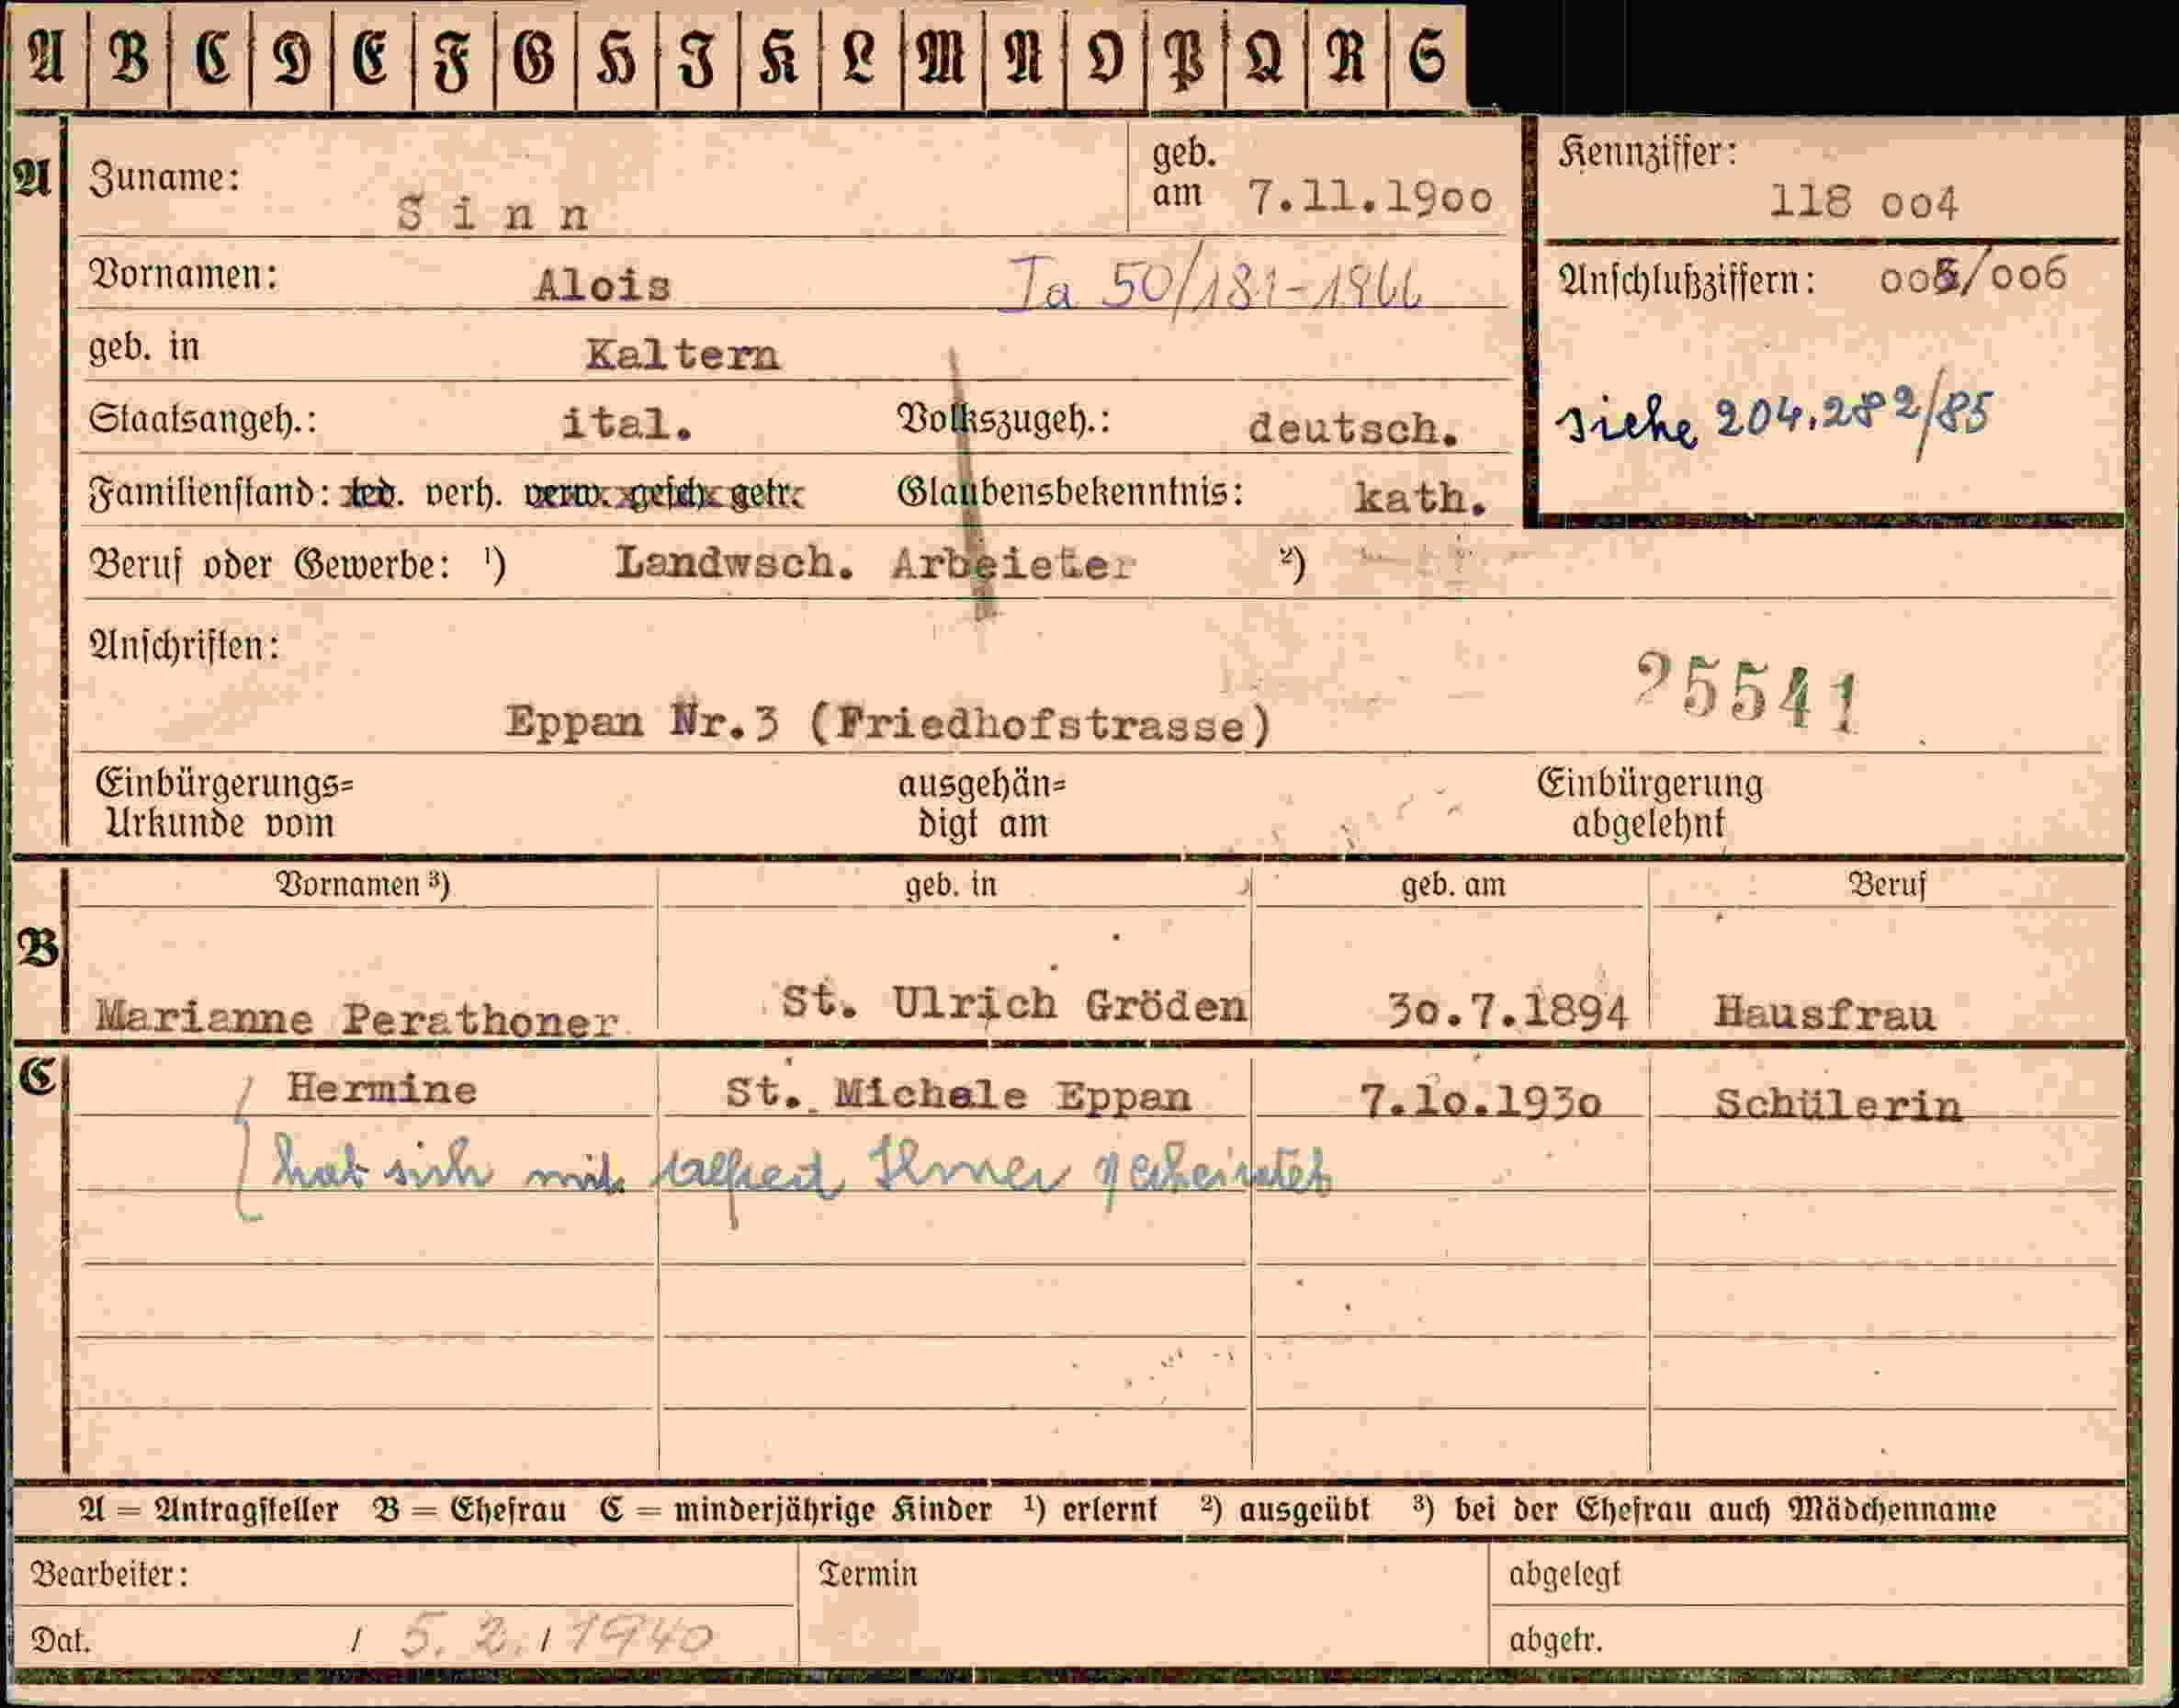 A B C D E F G H I K L M N O P Q R S
A Zuname: Sinn geb. am 7.11.1900
Kennziffer: 118 004
Vornamen: Alois Ja 50/181-1966
Anschlußziffern: 005/006
geb. in Kaltern
siehe 204.282/85
Staatsangeh.: ital. Volkszugeh.: deutsch.
Familienstand: led. verh. verw. gesch. getr. Glaubensbekenntnis: kath.
Beruf oder Gewerbe: ¹) Landwsch. Arbeieter ²)
Anschriften:
25541
Eppan Nr.3 (Friedhofstrasse)
Einbürgerungs= ausgehän= Einbürgerung
Urkunde vom digt am abgelehnt
Vornamen ³) geb. in geb. am Beruf
B Marianne Perathoner St. Ulrich Gröden 30.7.1894 Hausfrau
C Hermine St. Michele Eppan 7.10.1930 Schülerin
hat sich mit gegheiratet
A = Antragsteller B = Ehefrau C = minderjährige Kinder ¹) erlernt ²) ausgeübt ³) bei der Ehefrau auch Mädchenname
Bearbeiter: Termin abgelegt
Dat. / 5. 2. / 1940 abgetr.